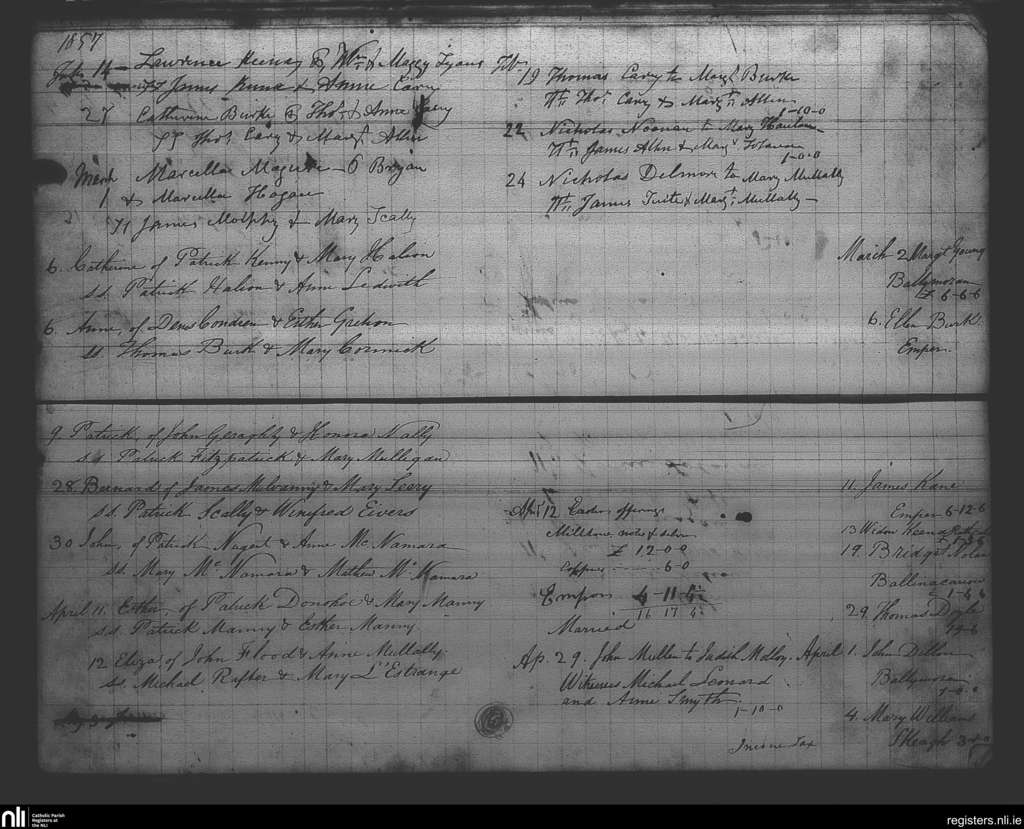 1857
14 Lawrence & Wm & Mary Lyons
James & Anne Cary
27 Catherine Burke Thos & Anne Cary
Thos Cary & Margt Allen
March Marcella Maguire Bryan
1 & Marcella Hagan
James Molphy & Mary Scally
6. Catherine of Patrick Kenny & Mary Halion
ss. Patrick Halion & Anne Ledwith
6. Anne, of Denis Condren & Esther Grehon
ss Thomas Burk & Mary Cormick
19 Thomas Cary to Margt Burke
Thos Cary & Margt Allen
1-10-0
22 Nicholas Noonan to Mary
James Allen & Mary
1-0-0
24 Nicholas Delmore to Mary Mullally
James Tuite & Margt Mullally
March 2 Margt Young
Ballymoran
£ 6-6-6
6. Ellen Burk
Emper
9. Patrick, of John Geraghty & Honora Nally
ss Patrick Fitzpatrick & Mary Mulligan
28. Bernard of James Mulvanny & Mary Leery
ss. Patrick Scally & Winefred Eivers
30 John, of Patrick Nugent & Anne McNamara
ss. Mary McNamara & Mathew McNamara
April 11. Esther, of Patrick Donohoe & Mary Manny
ss Patrick Manny & Esther Manny
12 Eliza, of John Flood & Anne Mullally
ss. Michael Rafter & Mary L'Estrange
April 12 Easter offerings
Milltown, notes & silver
£ 12-0-0
Copper 6-0
Empor 4-11-
16 17 4
Married
Ap. 29. John Mullen to Judith Molloy
Witnesses Michael Leonard
and Anne Smyth
1-10-0
Income Tax
11 James Kane
Emper 6-12-6
13 Widow Keena
19. Bridget Nolan
Ballinacarrow
1-6
29. Thomas Doyle
April 1. John Dillon
Ballymoran
1-0-0
4. Mary Williams
Skeagh
nli
Catholic Parish
Registers at
the NLI
registers.nli.ie